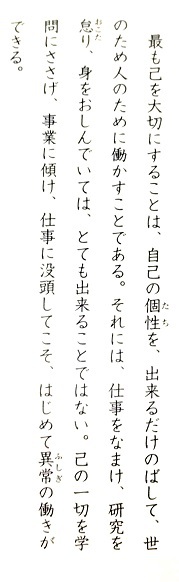 最も己を大切にすることは、自己の個性を、出来るだけのばして、世
のため人のために働かすことである。それには、仕事をなまけ、研究を
怠り、身をおしんでいては、とても出来ることではない。己の一切を学
問にささげ、事業に傾け、仕事に没頭してこそ、はじめて異常の働きが
できる。
たち
おこた
ふしぎ